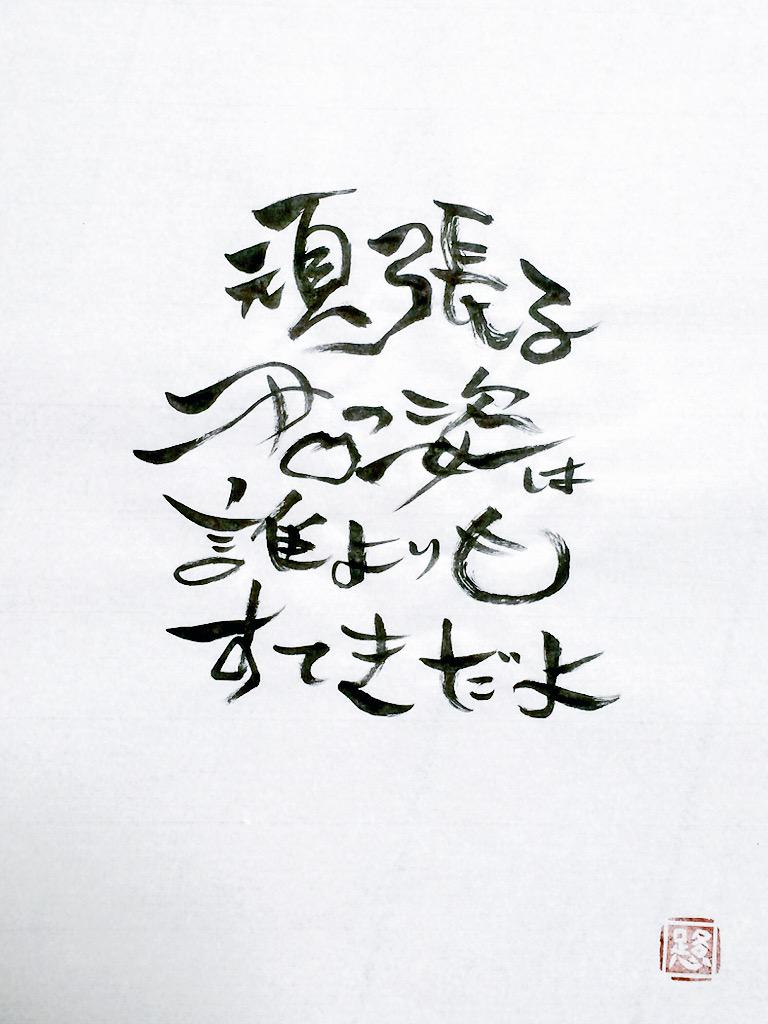 頑張る
君の姿は
誰よりも
すてきだよ